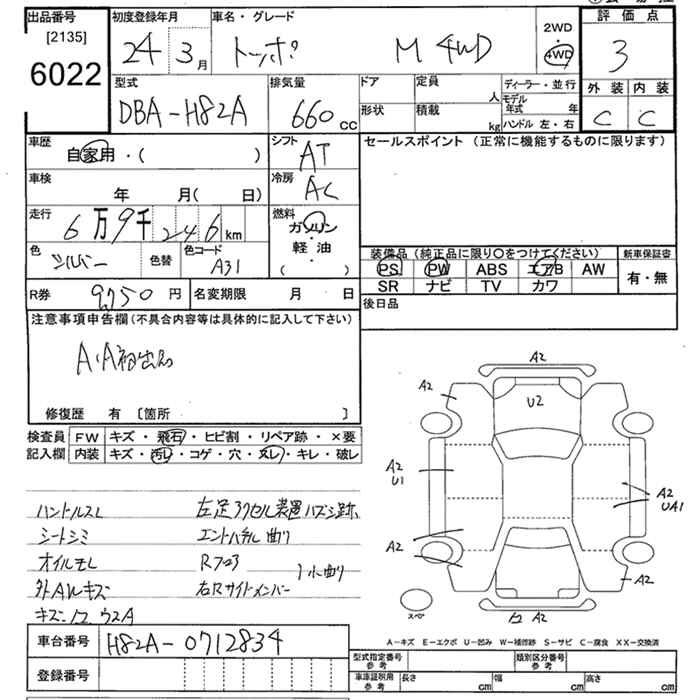 出品番号 初度登録年月 車名・グレード 評価点
[2135]
6022
24 3月 トッポ M 4WD
2WD
4WD
3
型式 排気量 ドア 定員 人 ディーラー・並行
DBA-H82A 660cc 形状 積載 kg モデル年式 年
ハンドル 左・右
外装 内装
C C
車歴 自家用・( ) シフト AT
セールスポイント (正常に機能するものに限ります)
車検 年 月( 日) 冷房 AC
走行 6万9千246km 燃料 ガソリン・軽油・( )
色 シルバー 色替 色コード A31
装備品(純正品に限り○をつけてください) 新車保証書
PS PW ABS エアB AW 有・無
SR ナビ TV カワ
R券 9750円 名変期限 月 日
後日品
注意事項申告欄(不具合内容等は具体的に記入して下さい)
A・A初出品
修復歴 有 [箇所 ]
検査員 FW キズ・飛石・ヒビ割・リペア跡・×要
記入欄 内装 キズ・汚レ・コゲ・穴・スレ・キレ・破レ
ハンドルスレ 左足アクセル装置ハズシ跡
シートシミ エンドパネル曲り
オイルモレ Rフロア 小曲り
外AWキズ 右Rサイドメンバー
キズ・凹 ウスA
A2
A2 U2
A2
U1
A2
UA1
A2
A2
凹 A2
スペア
A-キズ E-エクボ U-凹み W-補修跡 S-サビ C-腐食 XX-交換済
車台番号 H82A-0712834
登録番号
型式指定番号 参考 類別区分番号 参考
車庫証明用 参考 長さ cm 幅 cm 高さ cm